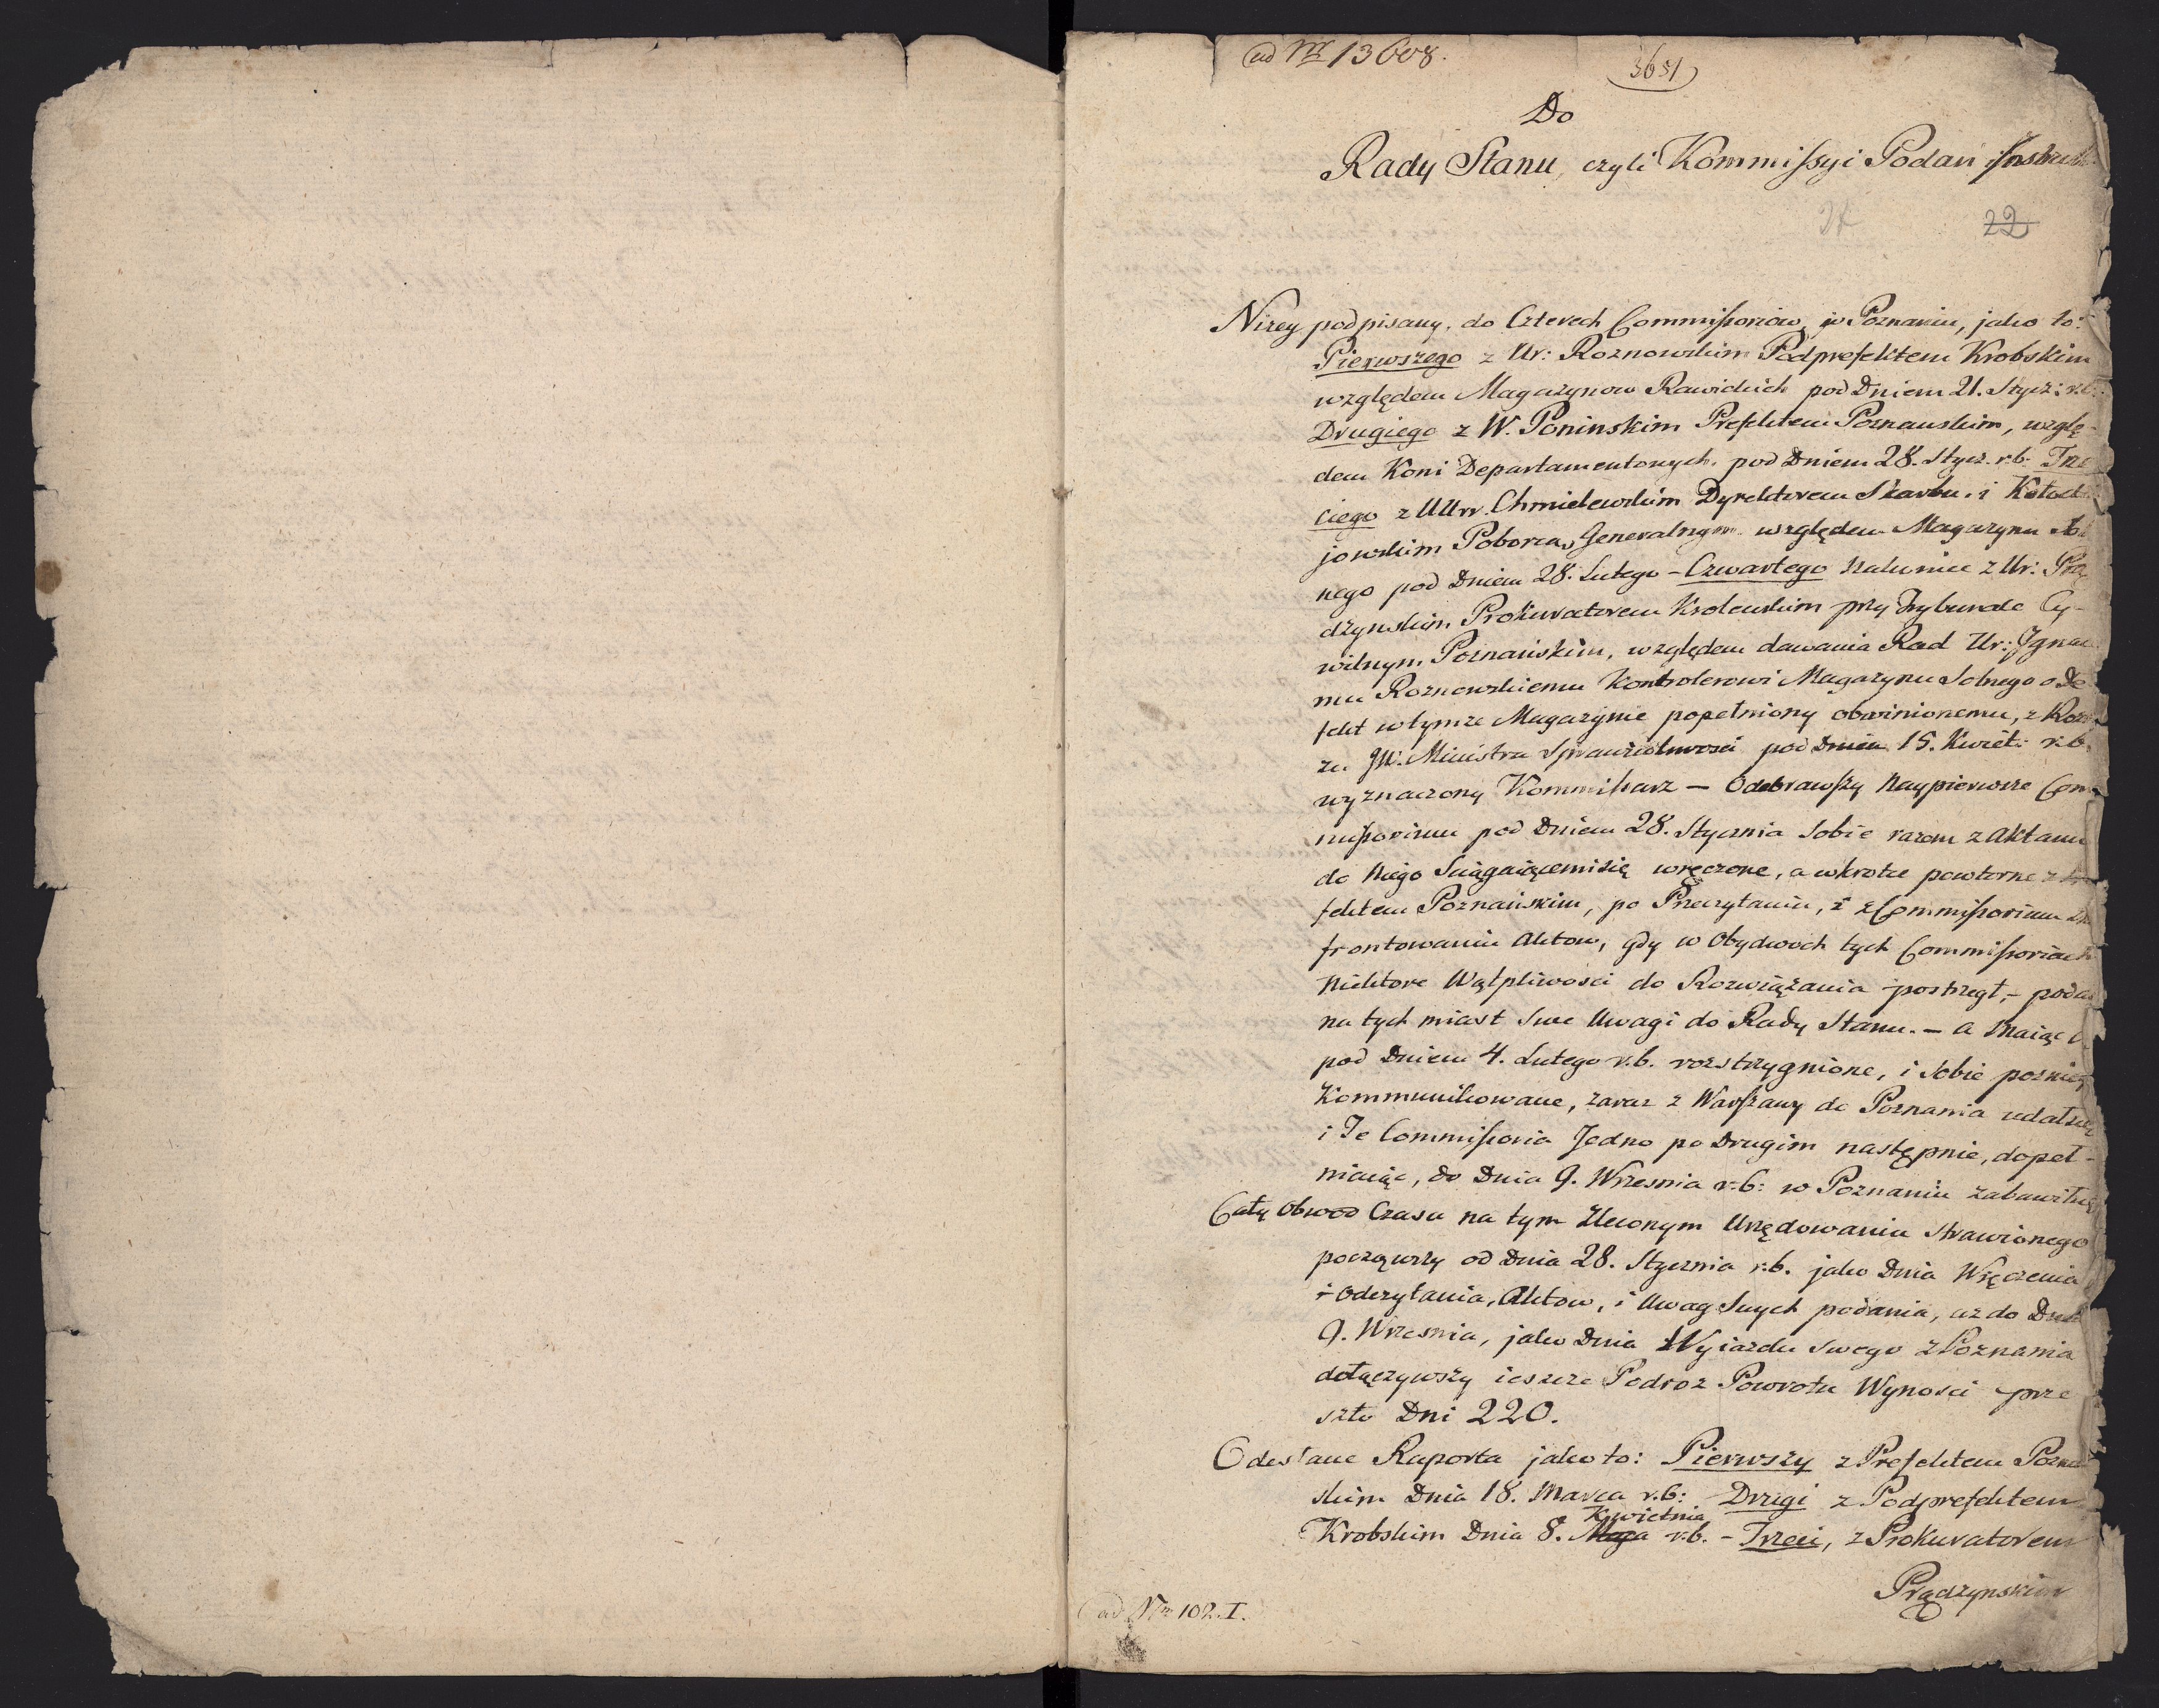 ad Nr 13608.
3651
Do
Rady Stanu, czyli Kommissyi Podań i Instruk
22
Niżey podpisany, do Czterech Commissoriów, w Poznaniu, jako to:
Pierwszego z Ur: Roznowskim Podprefektem Krobskim
względem Magazynow Rawickich pod Dniem 21. Stycz: r.b.
Drugiego z W. Poninskim Prefektem Poznanskim, wzglę-
dem Koni Departamentowych, pod Dniem 28. Stycz. r.b. Trze
ciego z UUrr. Chmielewskim Dyrektorem Skarbu. i Kołacz
jowskim Poborcą Generalnym względem Magazynu Sol
nego pod Dniem 28. Lutego - Czwartego nakoniec z Ur: Prą
dzynskim Prokuratorem Krolewskim przy Trybunale Cy-
wilnym Poznańskim, względem dawania Rad Ur: Ignace
mu Roznowskiemu Kontrolerowi Magazynu Solnego o De
fekt w tymze Magazynie popełniony obwinionemu, z Rozka
zu JW. Ministra Sprawiedliwosci pod Dniem 15. Kwiet: r.b.
wyznaczony Kommissarz — Odebrawszy Naypierwsze Com
missorium pod Dniem 28. Stycznia Sobie razem z Aktami
do Niego Sciągaiącemi się wręczone, a wkrotce powtorne z Pre
fektem Poznańskim, po Przeczytaniu, i z Commissorium Skon
frontowaniu Aktow, gdy w Obydwoch tych Commissoriach
Niektore Wątpliwosci do Rozwiązania postrzegł, - podał
na tych miast Swe Uwagi do Rady Stanu. - a Maiąc
pod Dniem 4. Lutego r.b. rozstrzygnione, i Sobie pozniey
Kommunikowane, zaraz z Warszawy do Poznania udał się
i Te Commissoria Jedno po Drugim następnie, dopeł-
niaiąc, do Dnia 9. Wrzesnia r.b: w Poznaniu zabawił się
Cały Obwod Czasu na tym Zleconym Urzędowaniu Strawionego
począwszy od Dnia 28. Stycznia r.b. jako Dnia Wręczenia
i Odczytania, Aktow, i Uwag Swych podania, az do Dnia
9. Wrzesnia, jako Dnia Wyiazdu Swego z Poznania
dołączywszy ieszcze Podroz Powrotu Wynosci prze
szło Dni 220.
Odesłane Raporta jako to: Pierwszy z Prefektem Poznań
skim Dnia 18. Marca r.b: Drugi z Podprefektem
Kwietnia
Krobskim Dnia 8. Maja r.b. - Trzeci, z Prokuratorem
Prądzynskim
ad Nr 102. I.